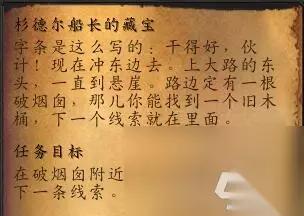 杉德尔船长的藏宝
字条是这么写的：干得好，伙
计！现在冲东边去。上大路的东
头，一直到悬崖。路边定有一根
破烟囱，那儿你能找到一个旧木
桶，下一个线索就在里面。
任务目标
在破烟囱附近
下一条线索。